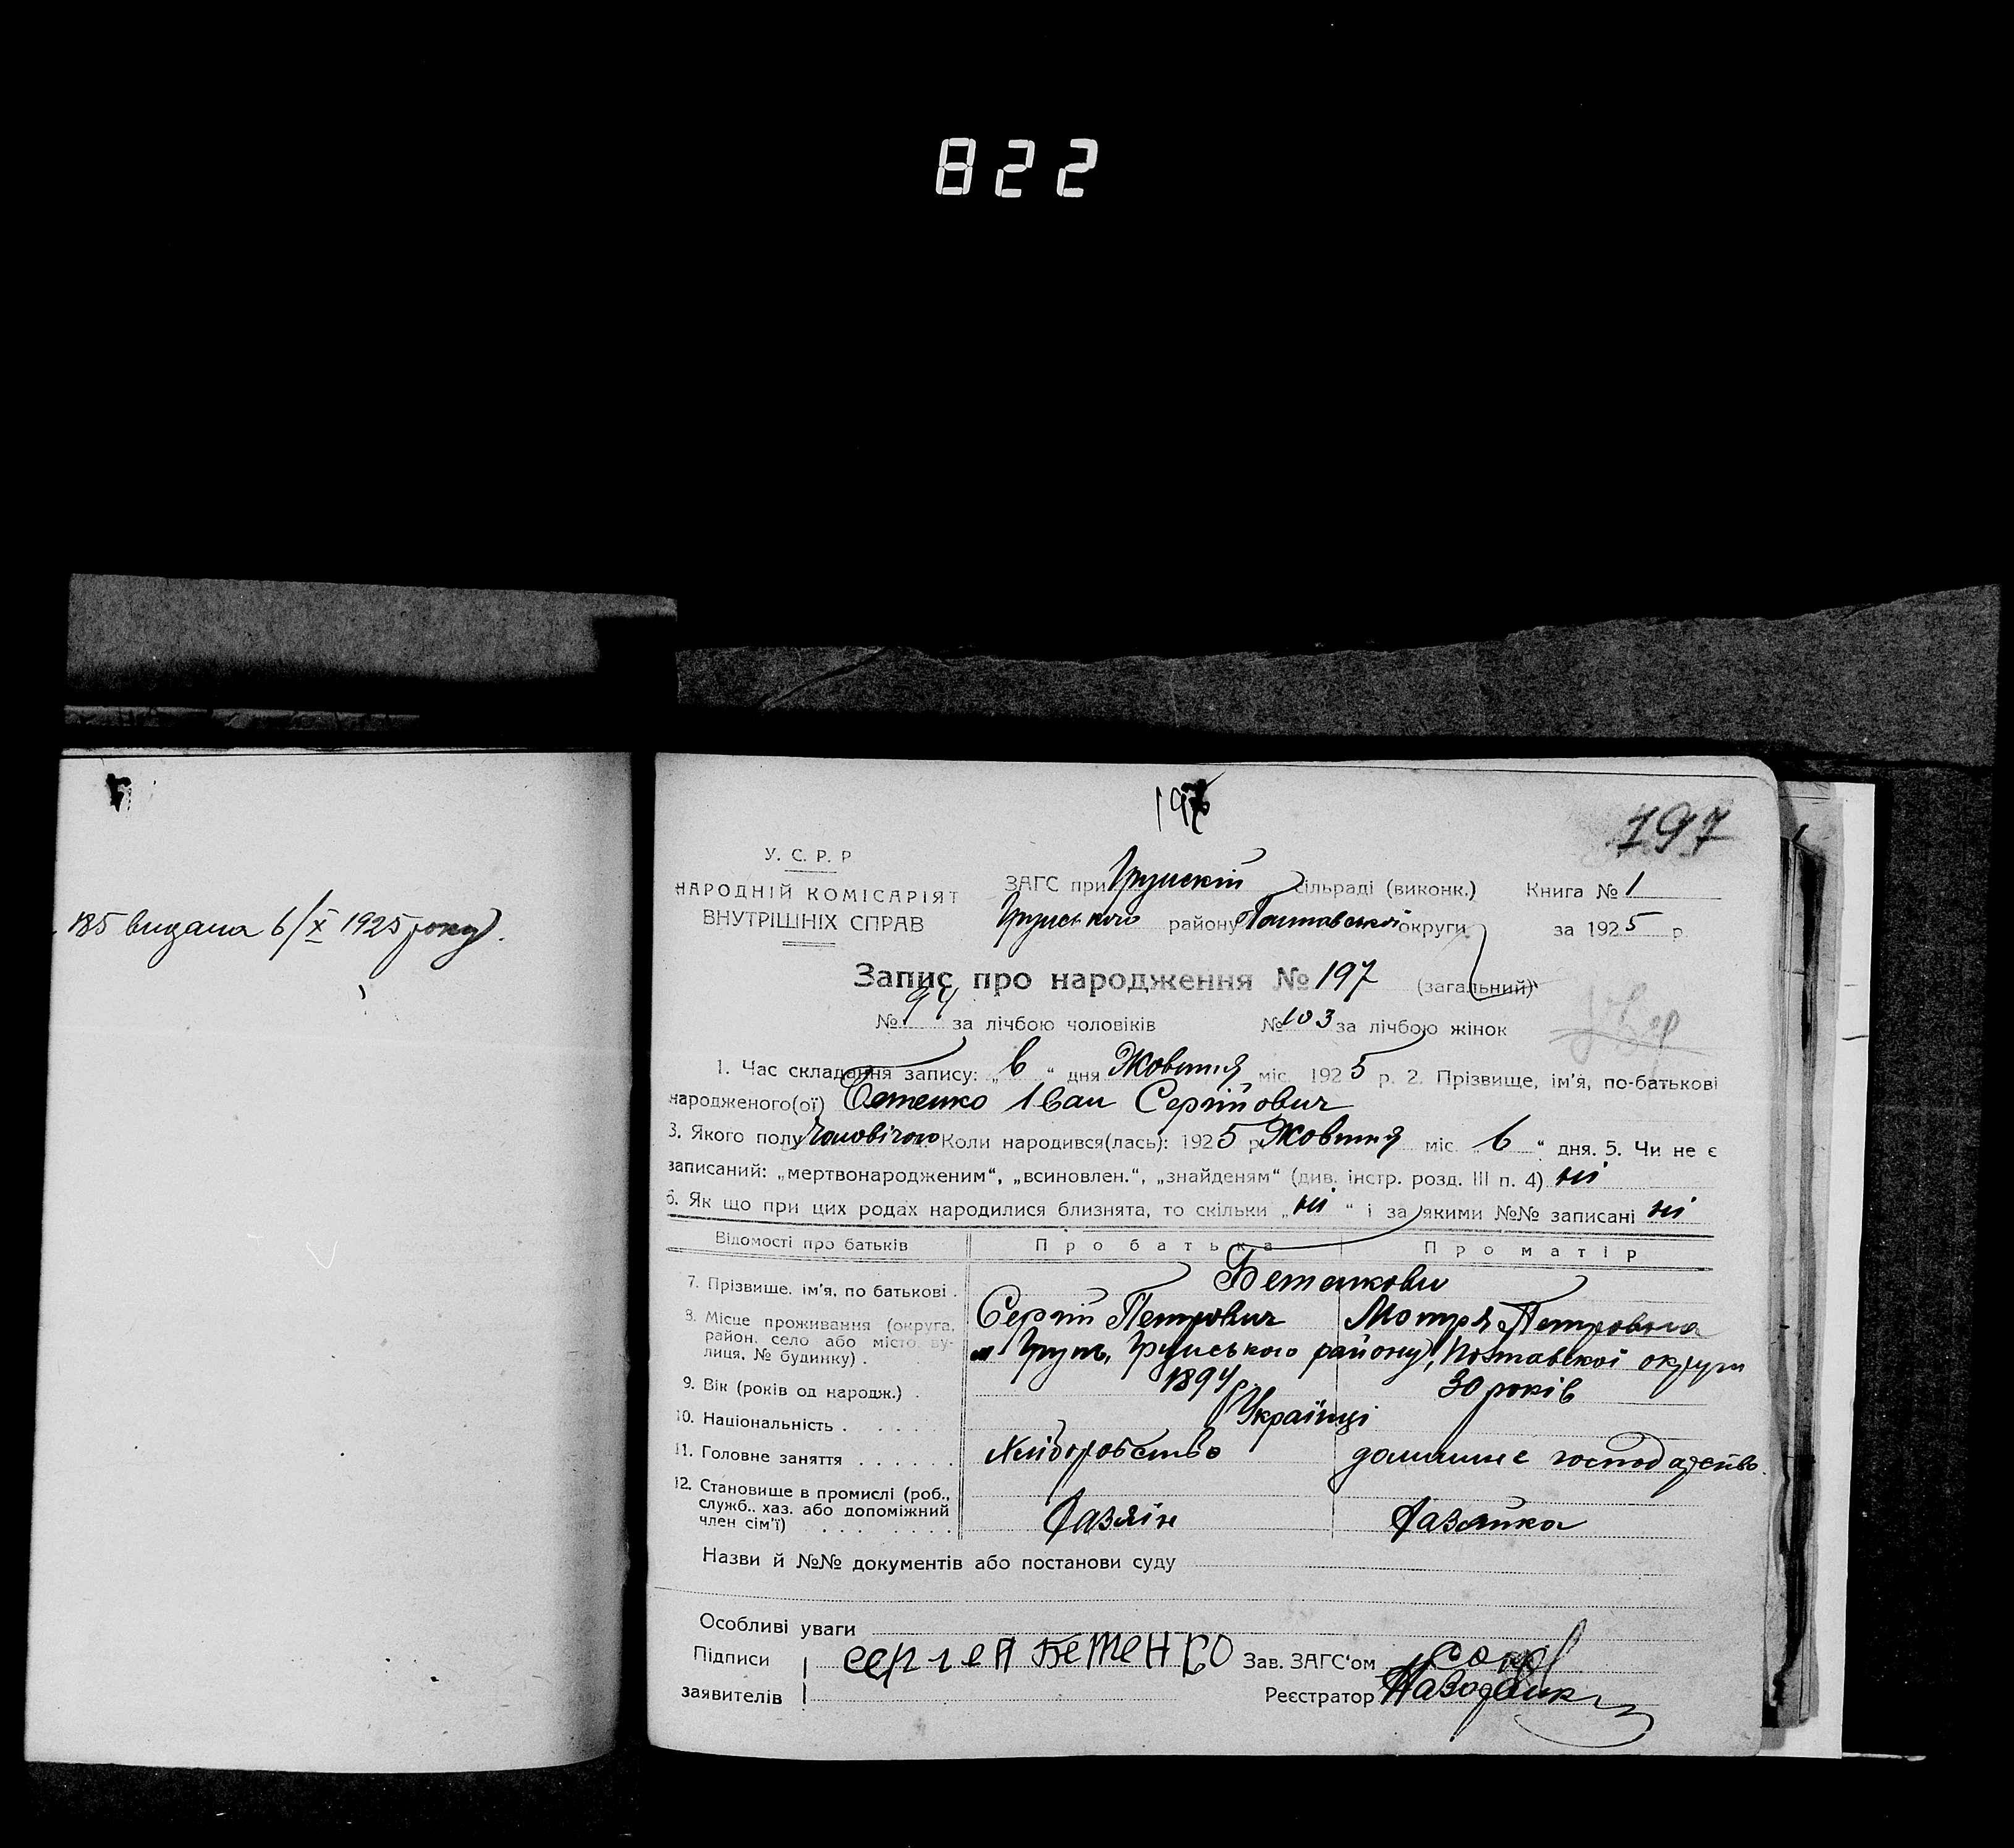 822
197
197
185 видана 6/X 1925 року.
У. С. Р. Р
НАРОДНІЙ КОМІСАРІЯТ
ВНУТРІШНІХ СПРАВ
ЗАГС при Грунскій сільраді (виконк.) Книга № 1
Грунського району Полтавської округи за 1925 р.
Запис про народження № 197 (загальний)
№ 94 за лічбою чоловіків № 103 за лічбою жінок
1. Час складання запису: „6“ дня Жовтня міс. 1925 р. 2. Прізвище, ім'я, по-батькові
народженого(ої) Бетенко Іван Сергійович
3. Якого полу Чоловічого Коли народився(лась): 1925 р. Жовтня міс. „6“ дня. 5. Чи не є
записаний: „мертвонародженим“, „всиновлен.“, „знайденям“ (див. інстр. розд. III п. 4) ні
6. Як що при цих родах народилися близнята, то скільки „ні“ і за якими №№ записані ні
Відомості про батьків Про батька Про матір
7. Прізвище, ім'я, по батькові . Бетенкови
Сергій Петрович Мотря Петровна
8. Місце проживання (округа, район, село або місто, вулиця, № будинку) . м Грунь, Грунського району, Полтавської округи
9. Вік (років од народж.) . 1894 р. 30 років
10. Національність . . . . . Українці
11. Головне заняття . . . . . . Хліборобство домашнє господарство.
12. Становище в промислі (роб.,
служб., хаз. або допоміжний
член сім'ї) . . . . . . . Хазяїн Хазяйка
Назви й №№ документів або постанови суду
Особливі уваги
Підписи сергей Бетенко Зав. ЗАГС'ом
заявителів Реєстратор